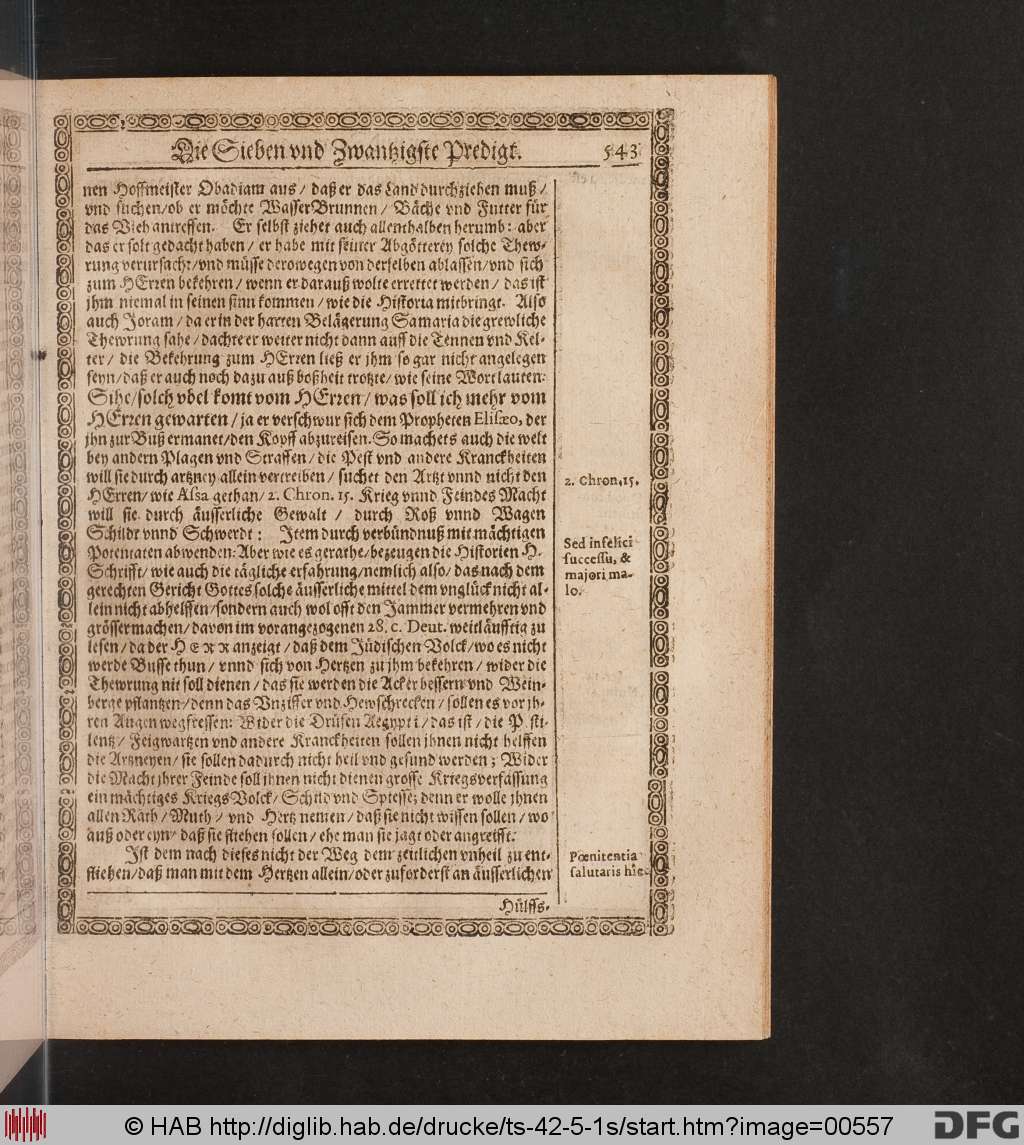 Die Sieben vnd Zwantzigste Predigt. 543
nen Hoffmeister Obadiam aus / daß er das Land durchziehen muß /
vnd suchen / ob er möchte Wasser Brunnen / Bäche vnd Futter für
das Vieh antreffen. Er selbst ziehet auch allenthalben herumb: aber
das er solt gedacht haben / er habe mit seiner Abgötterey solche Thew-
rung verursacht / vnd müsse derowegen von derselben ablassen / vnd sich
zum HErren bekehren / wenn er darauß wolte errettet werden / das ist
jhm niemal in seinen sinn kommen / wie die Historia mitbringt. Also
auch Joram / da er in der harten Belägerung Samaria die grewliche
Thewrung sahe / dachte er weiter nicht dann auff die Tennen vnd Kel-
ter / die Bekehrung zum HErren ließ er jhm so gar nicht angelegen
seyn / daß er auch noch dazu auß boßheit trotzte / wie seine Wort lauten:
Sihe / solch vbel komt vom HErren / was soll ich mehr vom
HErren gewarten / ja er verschwur sich dem Propheten Elisæo, der
jhn zur Buß ermanet / den Kopff abzureisen. So machets auch die welt
bey andern Plagen vnd Straffen / die Pest vnd andere Kranckheiten
will sie durch artzney allein vertreiben / suchet den Artzt vnnd nicht den
HErren / wie Assa gethan / 2. Chron. 15. Krieg vnnd Feindes Macht
will sie durch äusserliche Gewalt / durch Roß vnnd Wagen
Schildt vnnd Schwerdt: Item durch verbündnuß mit mächtigen
Potentaten abwenden: Aber wie es gerathe / bezeugen die Historien H.
Schrifft / wie auch die tägliche erfahrung / nemlich also / das nach dem
gerechten Gericht Gottes solche äusserliche mittel dem vnglück nicht al-
lein nicht abhelffen / sondern auch wol offt den Jammer vermehren vnd
grösser machen / davon im vorangezogenen 28. c. Deut. weitläufftig zu
lesen / da der HERR anzeigt / daß dem Jüdischen Volck / wo es nicht
werde Busse thun / vnnd sich von Hertzen zu jhm bekehren / wider die
Thewrung nit soll dienen / das sie werden die Acker bessern vnd Wein-
berge pflantzen / denn das Vnziffer vnd Hewschrecken / sollen es vor jh-
ren Augen wegfressen: Wider die Drüsen Aegypti / das ist / die P sti-
lentz / Feigwartzen vnd andere Kranckheiten sollen jhnen nicht helffen
die Artzneyen / sie sollen dadurch nicht heil vnd gesund werden; Wider
die Macht jhrer Feinde soll jhnen nicht dienen grosse Kriegsverfassung
ein mächtiges Kriegs Volck / Schild vnd Spiesse; denn er wolle jhnen
allen Rath / Muth / vnd Hertz nemen / daß sie nicht wissen sollen / wo
auß oder eyn / daß sie fliehen sollen / ehe man sie jagt oder angreifft.
Ist dem nach dieses nicht der Weg dem zeitlichen vnheil zu ent-
fliehen / daß man mit dem Hertzen allein / oder zuforderst an äusserlichen
Hülffs-
2. Chron. 15.
Sed infelici
successu, &
majori ma-
lo.
Pœnitentia
salutaris hîc
© HAB http://diglib.hab.de/drucke/ts-42-5-1s/start.htm?image=00557
DFG